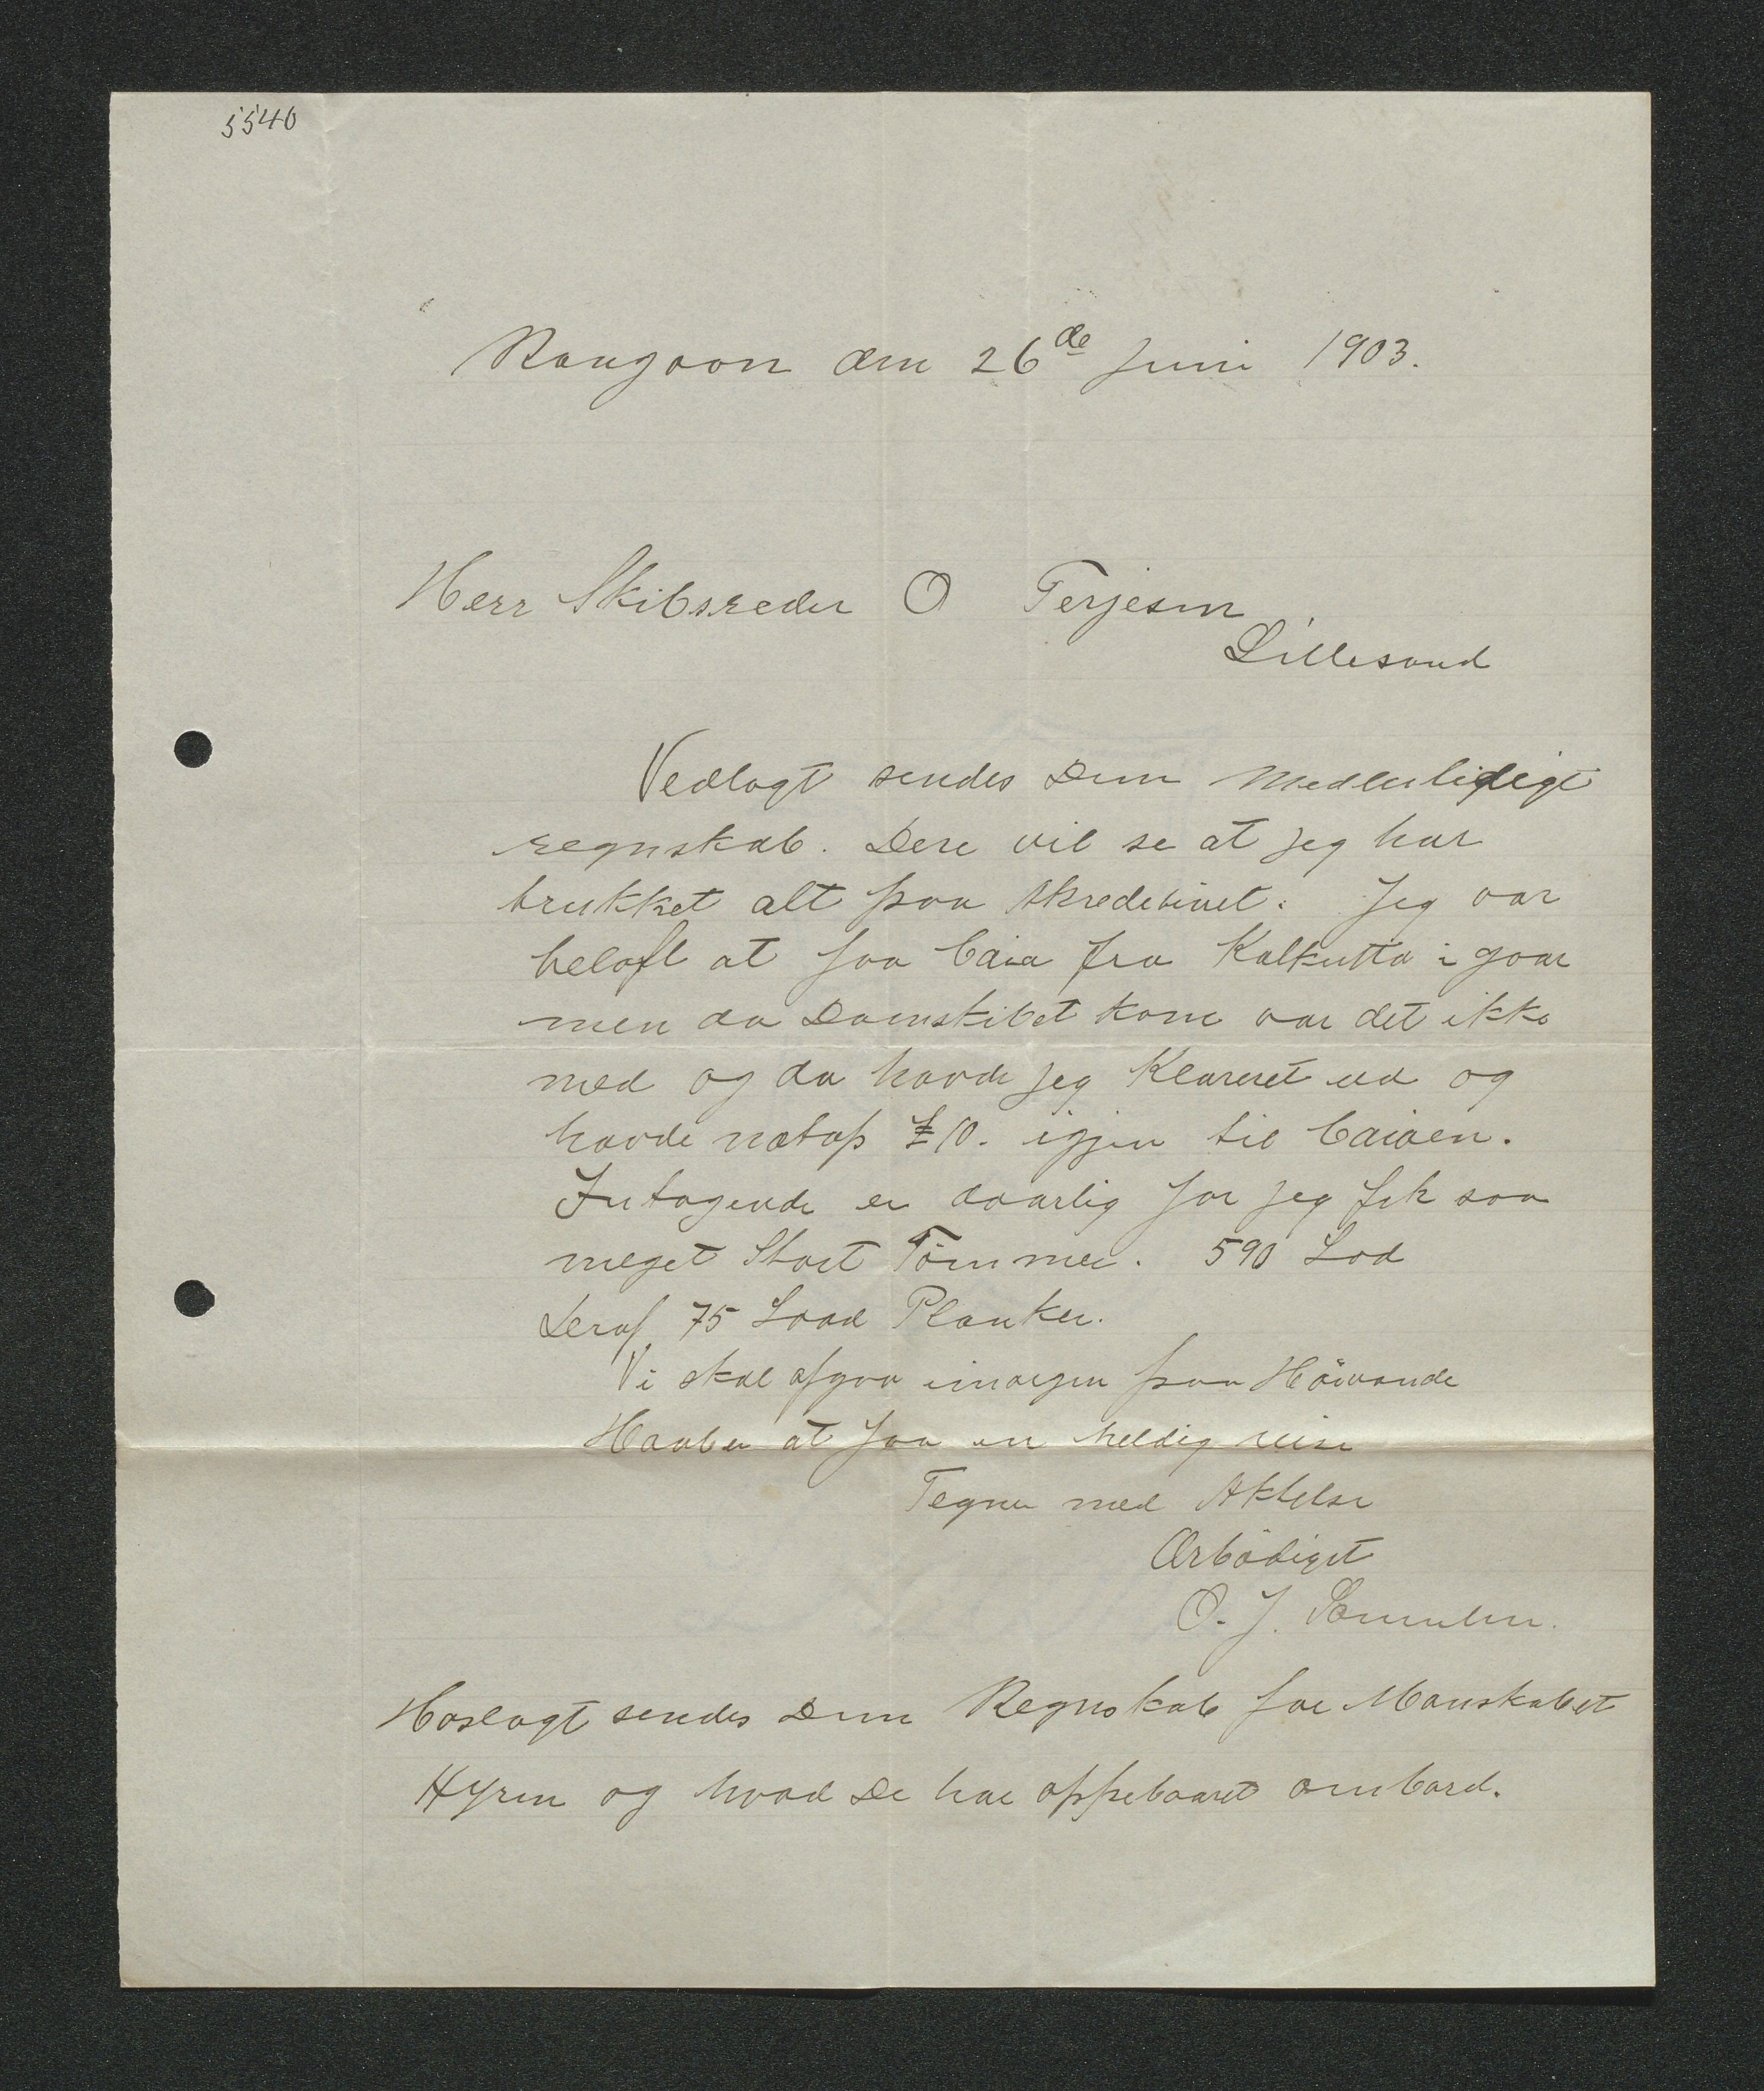 5540
Rangoon den 26de Juni 1903.
Herr Skibsreder O Terjesen
Lillesand
Vedlagt sendes Dem Medlertidigt
regnskab. Dere vil se at jeg har
brukket alt paa Akredetivet. Jeg var
belaft at faa Caia fra Kalkutta i gaar
men da Damskibet kom var det ikke
med og da havde jeg Klareret ud og
havde natop £10. igjen til Caiaen.
Intagende er daarlig for jeg fik saa
meget Stort Tömmer. 590 Lod
Deraf 75 Load Planker.
Vi skal afgaa imorgen paa Höivande
Haaber at faa en heldig reise
Tegner med Aktelse
Ærbödigst
O. J.
Hoslagt sendes Dem Regnskab for Manskabet
Hyren og hvad De har oppebaaret ombord.